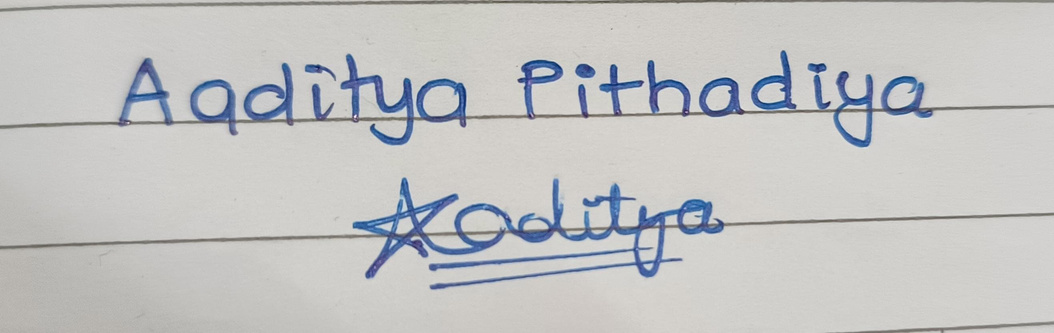 Aaditya Pithadiya
Aaditya